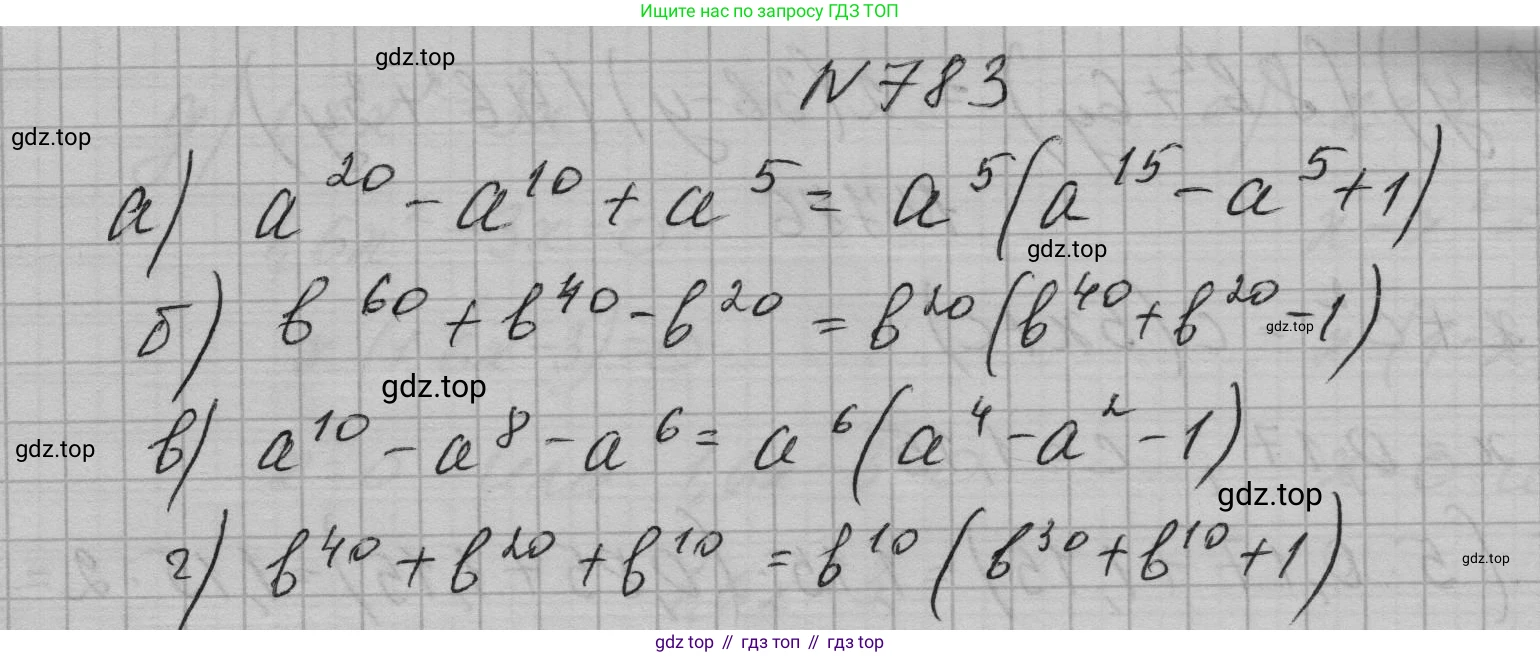 Ищите нас по запросу ГДЗ ТОП
gdz.top
N 783
gdz.top
а) a^20 - a^10 + a^5 = a^5 (a^15 - a^5 + 1)
gdz.top
б) b^60 + b^40 - b^20 = b^20 (b^40 + b^20 - 1)
gdz.top
gdz.top
в) a^10 - a^8 - a^6 = a^6 (a^4 - a^2 - 1)
gdz.top
gdz.top
г) b^40 + b^20 + b^10 = b^10 (b^30 + b^10 + 1)
gdz.top
gdz.top // гдз топ // гдз top